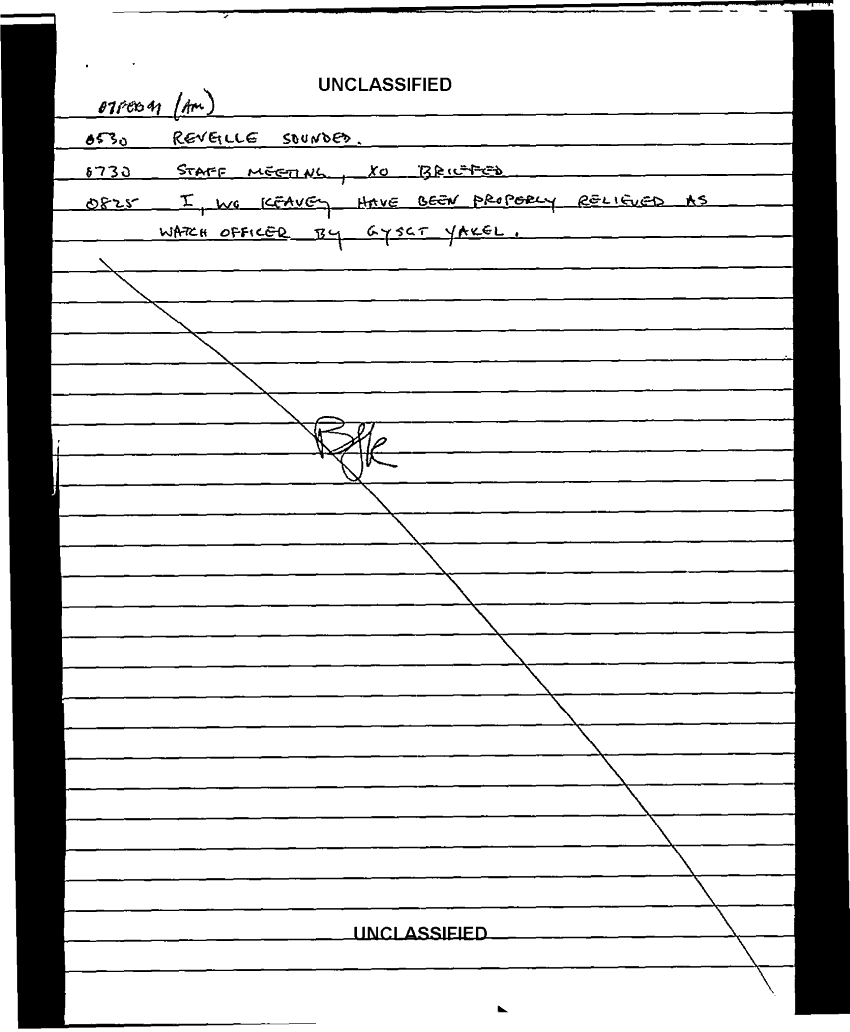 UNCLASSIFIED
07FEB91 (AM)
0530 REVEILLE SOUNDED.
0730 STAFF MEETING, XO BRIEFED
0825 I, WO KEAVEY HAVE BEEN PROPERLY RELIEVED AS
WATCH OFFICER BY GYSGT YAKEL.
BJK
UNCLASSIFIED